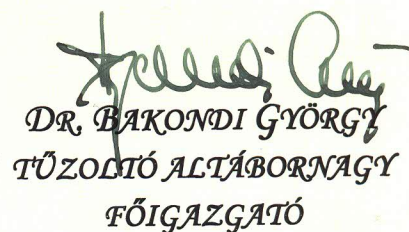 DR. BAKONDI GYÖRGY
TŰZOLTÓ ALTÁBORNAGY
FŐIGAZGATÓ